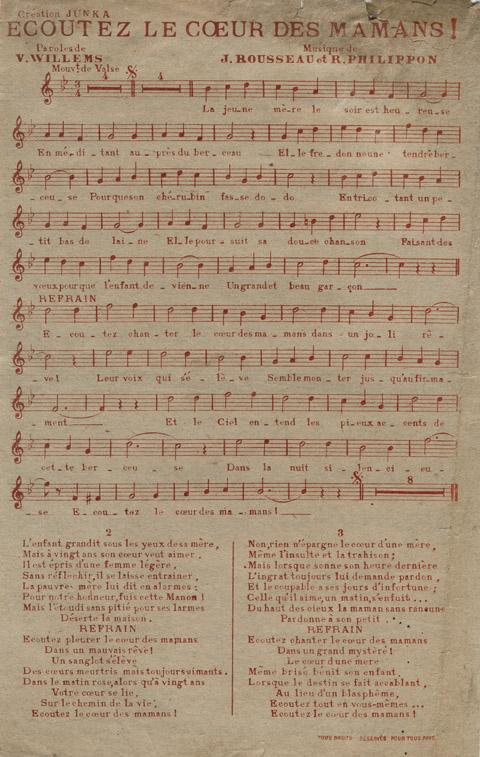 Création JUNKA
ECOUTEZ LE CŒUR DES MAMANS!
Paroles de
V. WILLEMS
Musique de
J. ROUSSEAU et R. PHILIPPON
Mouvt de Valse
4 4
La jeu_ne mè_re le soir est heu_reu_se
En mé_di_tant au_près du ber_ceau El_le fre_don_ne une tendre ber_
_ceu_se Pour que son ché_ru_bin fas_se do_do En tri_co_tant un pe_
_tit bas de lai_ne El_le pour_suit sa dou_ce chan_son Fai_sant des
vœux pour que l'enfant de_vien_ne Un grand et beau gar_çon___
REFRAIN
E_cou_tez chan_ter le cœur des ma_mans dans un jo_li rê_
_ve! Leur voix qui s'é_lè_ve Semble mon_ter jus_qu'au fir_ma_
_ment___ Et le Ciel en_tend les pi_eux ac_cents de
cet_te ber_ceu_se Dans la nuit si_len_ci_eu_
_se E_cou_tez le cœur des ma_mans!___
8
2
L'enfant grandit sous les yeux de sa mère,
Mais à vingt ans son cœur veut aimer.
Il est épris d'une femme légère,
Sans réfléchir, il se laisse entrainer,
La pauvre mère lui dit en alarmes:
Pour notre honneur, fuis cette Manon!
Mais l'étourdi sans pitié pour ses larmes
Déserte la maison.
REFRAIN
Ecoutez pleurer le cœur des mamans
Dans un mauvais rêve!
Un sanglot s'élève
Des cœurs meurtris mais toujours aimants.
Dans le matin rose, alors qu'à vingt ans
Votre cœur se lie,
Sur le chemin de la vie,
Ecoutez le cœur des mamans!
3
Non, rien n'épargne le cœur d'une mère,
Même l'insulte et la trahison;
Mais lorsque sonne son heure dernière
L'ingrat toujours lui demande pardon,
Et le coupable a ses jours d'infortune;
Celle qu'il aime, un matin, s'enfuit...
Du haut des cieux la maman sans rancune
Pardonne à son petit.
REFRAIN
Ecoutez chanter le cœur des mamans
Dans un grand mystère!
Le cœur d'une mère
Même brisé bénit son enfant.
Lorsque le destin se fait accablant,
Au lieu d'un blasphème,
Ecoutez tout en vous-mêmes...
Ecoutez le cœur des mamans!
TOUS DROITS RÉSERVÉS POUR TOUS PAYS